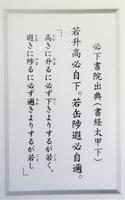 必下書院出典(書経太甲下)
若升高必自下。若陟遐必自邇。
「高きに升るに必ず下きよりするが若く、
遐きに陟るに必ず邇きよりするが若し」